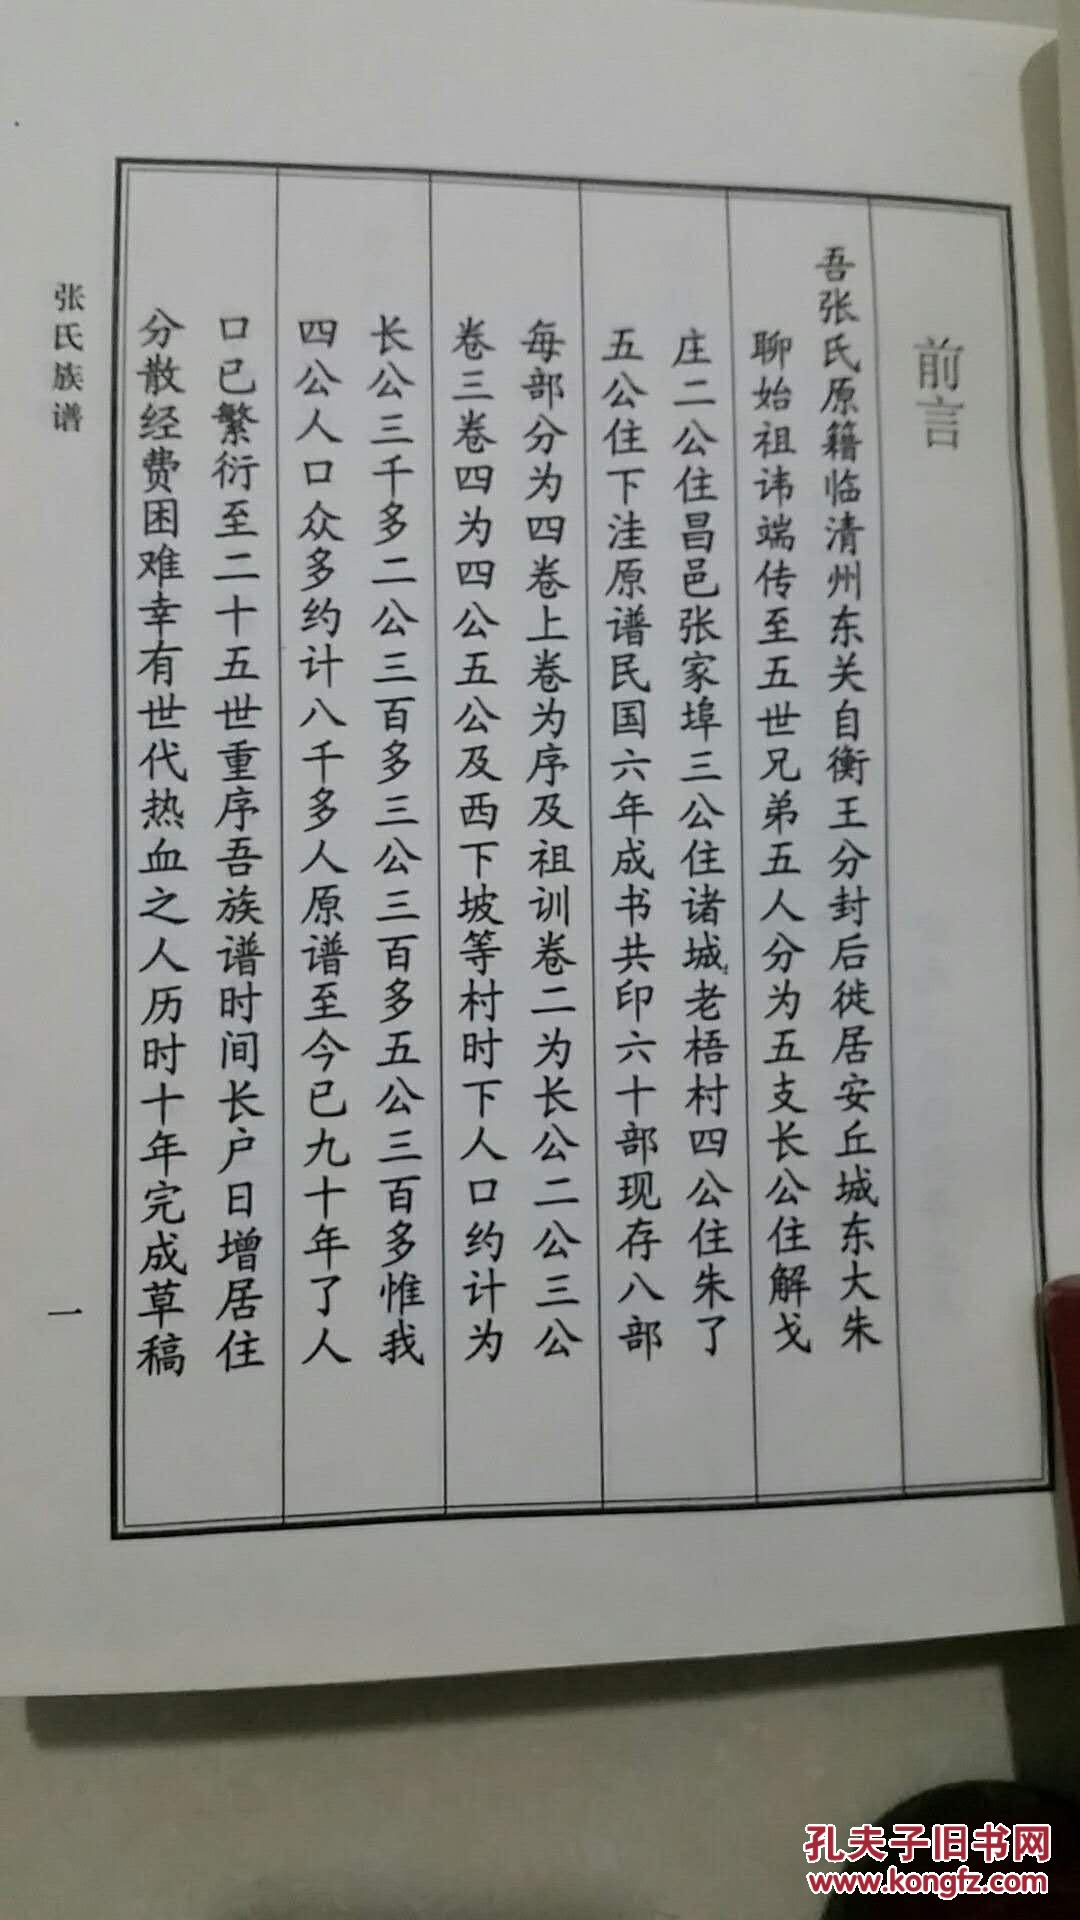 前言
吾张氏原籍临清州东关自衡王分封后徙居安丘城东大朱
聊始祖讳端传至五世兄弟五人分为五支长公住解戈
庄二公住昌邑张家埠三公住诸城老梧村四公住朱了
五公住下洼原谱民国六年成书共印六十部现存八部
每部分为四卷上卷为序及祖训卷二为长公二公三公
卷三卷四为四公五公及西下坡等村时下人口约计为
长公三千多二公三百多三公三百多五公三百多惟我
四公人口众多约计八千多人原谱至今已九十年了人
口已繁衍至二十五世重序吾族谱时间长户日增居住
分散经费困难幸有世代热血之人历时十年完成草稿
张氏族谱
一
孔夫子旧书网
www.kongfz.com